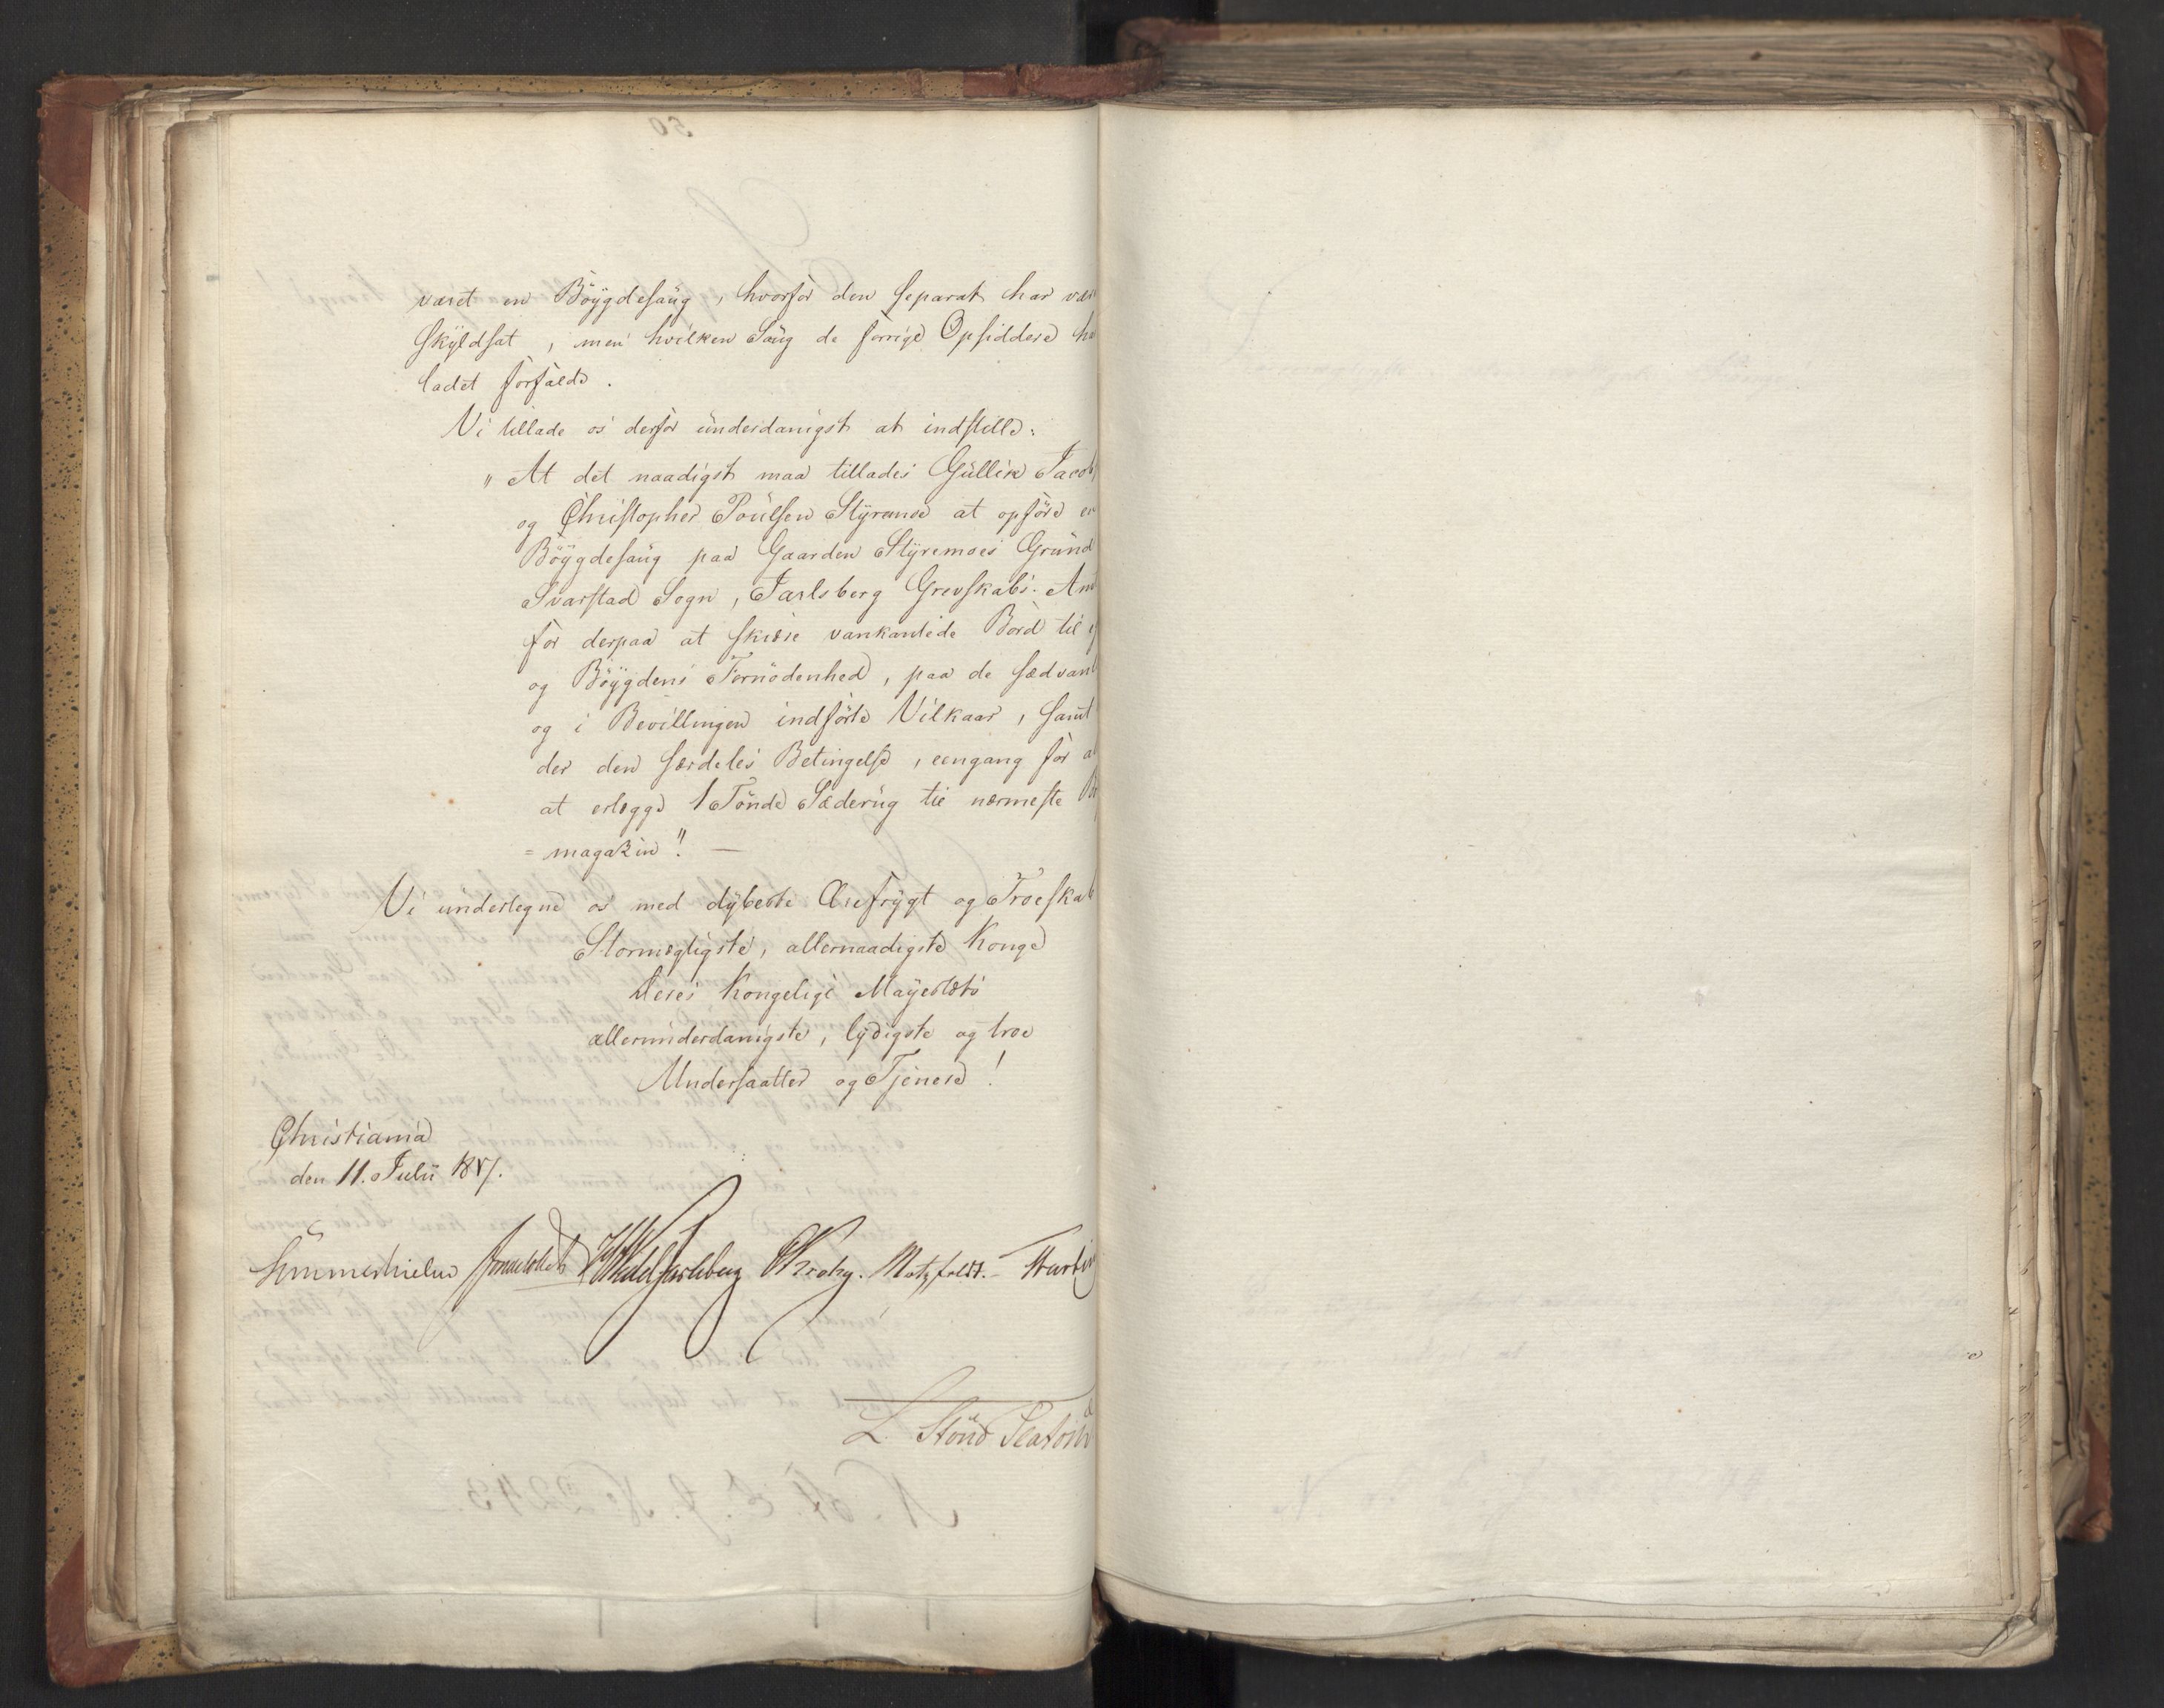 været en Böygdesaug, hvorfor den separat har vær
skyldsat, men hvilken Saug de forrige Opsiddere ha
ladet forfalde.
Vi tillade os derfor underdanigst at indstille:
"At det naadigst maa tillades Gullik Jacob
og Christopher Poulsen Styremoe at opföre en
Böygdesaug paa Gaarden Styremoes Grund
Svarstad Sogn, Jarlsberg Grevskabs Amt
for derpaa at skiære vankantede Bord til
og Böygdens Fornödenhed, paa de sædvanl
og i Bevillingen indförte Vilkaar, samt
der den særdeles Betingelse, eengang for a
at erlægge 1 Tönde Sæderug til nærmeste
= magazin". —
Vi undertegne os med dybeste Ærefrygt og Troeskab
Stormægtigste, allernaadigste Konge
Deres Kongelige Mayestæts
allerunderdanigste, lydigste og troe
Undersaatter og Tjenere!
Christiania
den 11. Julii 1817.
Sommerhielm Wedel Jarlsberg Krohg. Motzfeldt.
L. Stoud Platou